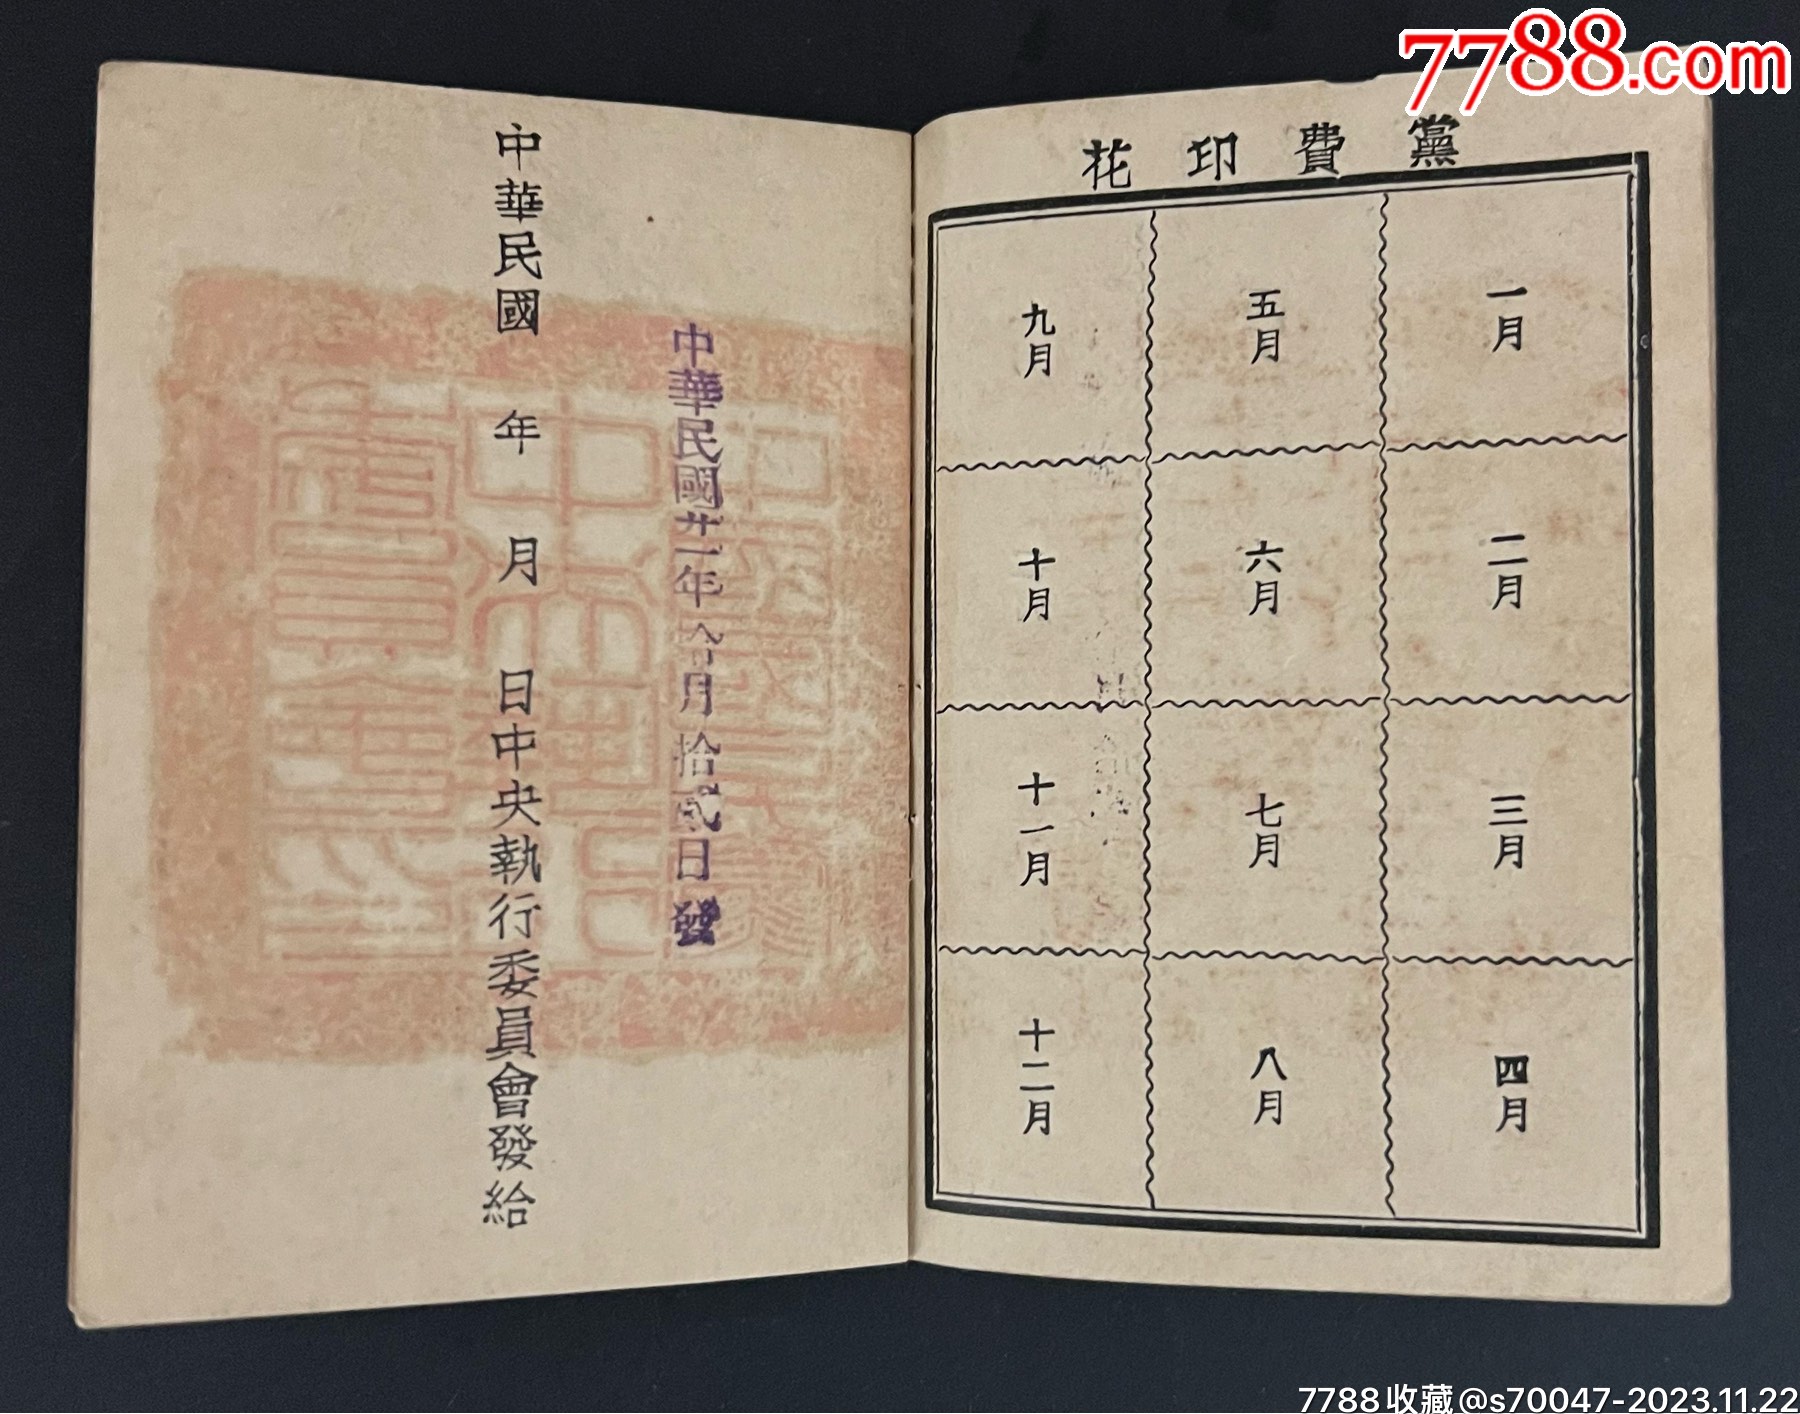 7788.com
黨費印花
一月
二月
三月
四月
五月
六月
七月
八月
九月
十月
十一月
十二月
中華民國廿一年 月拾貳日發
中華民國 年 月 日中央執行委員會發給
7788收藏@s70047-2023.11.22